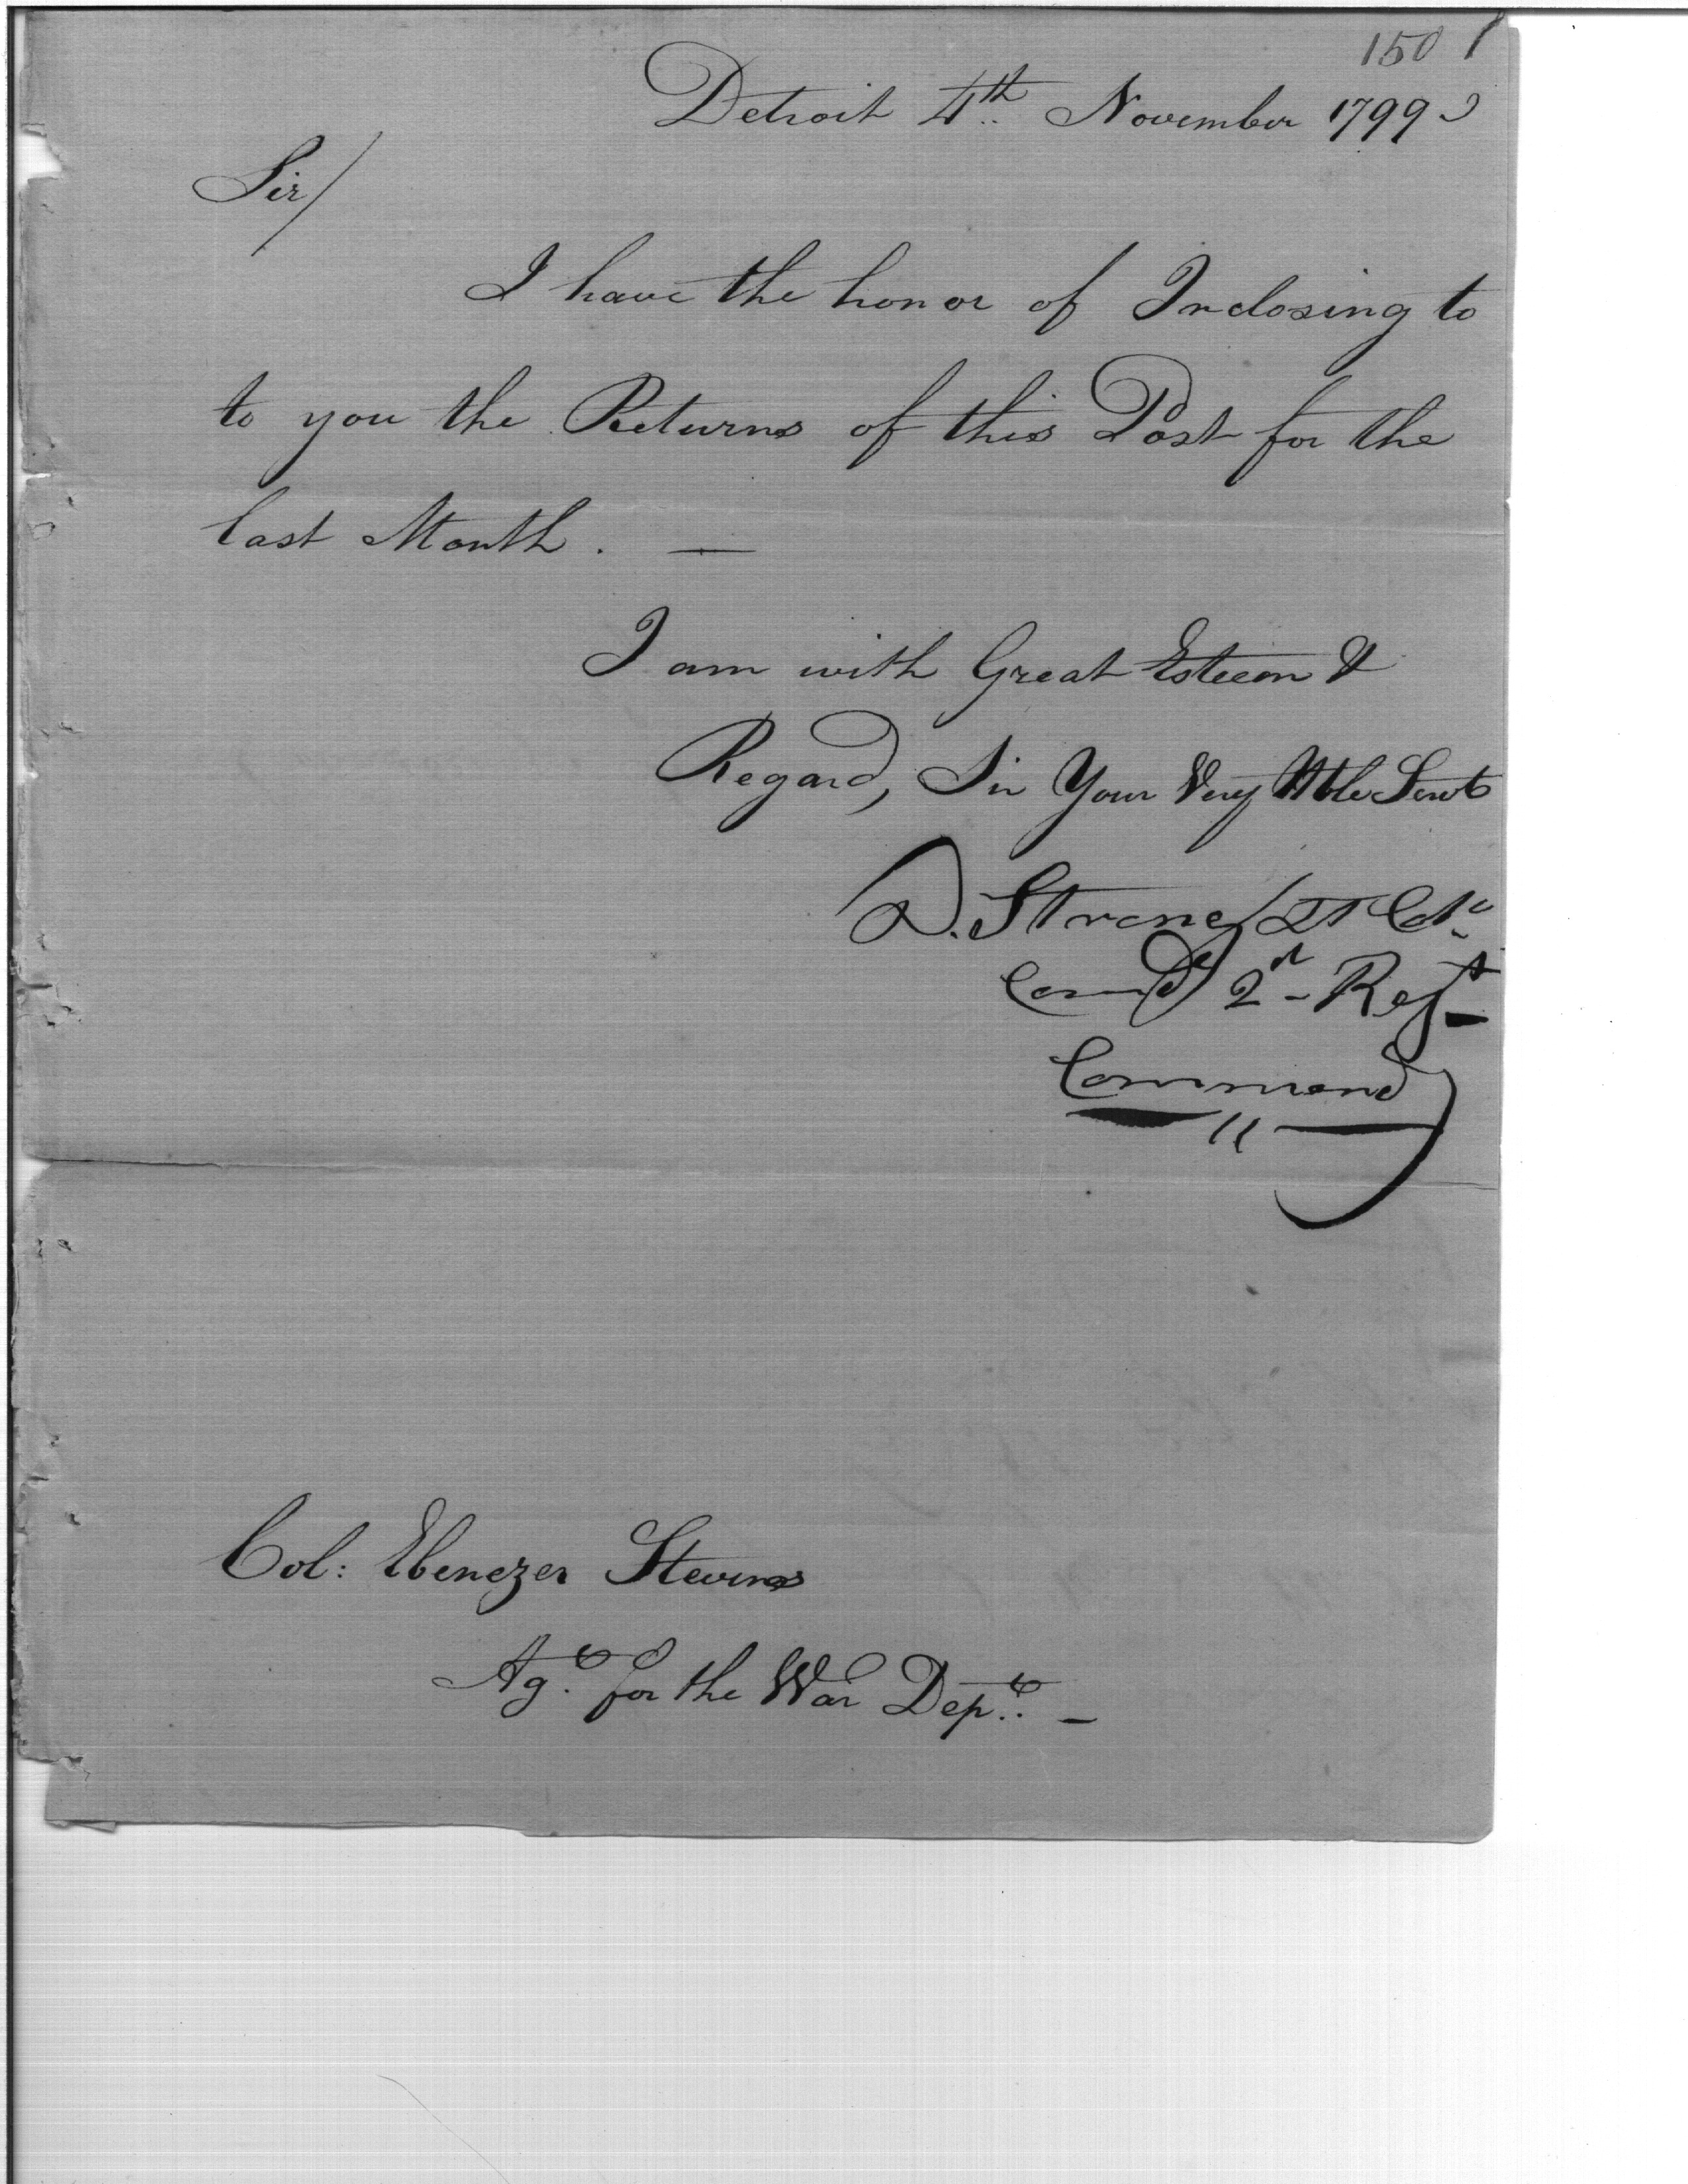 150
Detroit 4th November 1799
Sir/
I have the honor of Inclosing to
to you the Returns of this Post for the
last Month. —
I am with Great Esteem &
Regard, Sir Your Very Hble Servt
D. Strong Lt Col
Comdg 2d Regt
Command
Col: Ebenezer Stevens
Agt for the War Dept. —